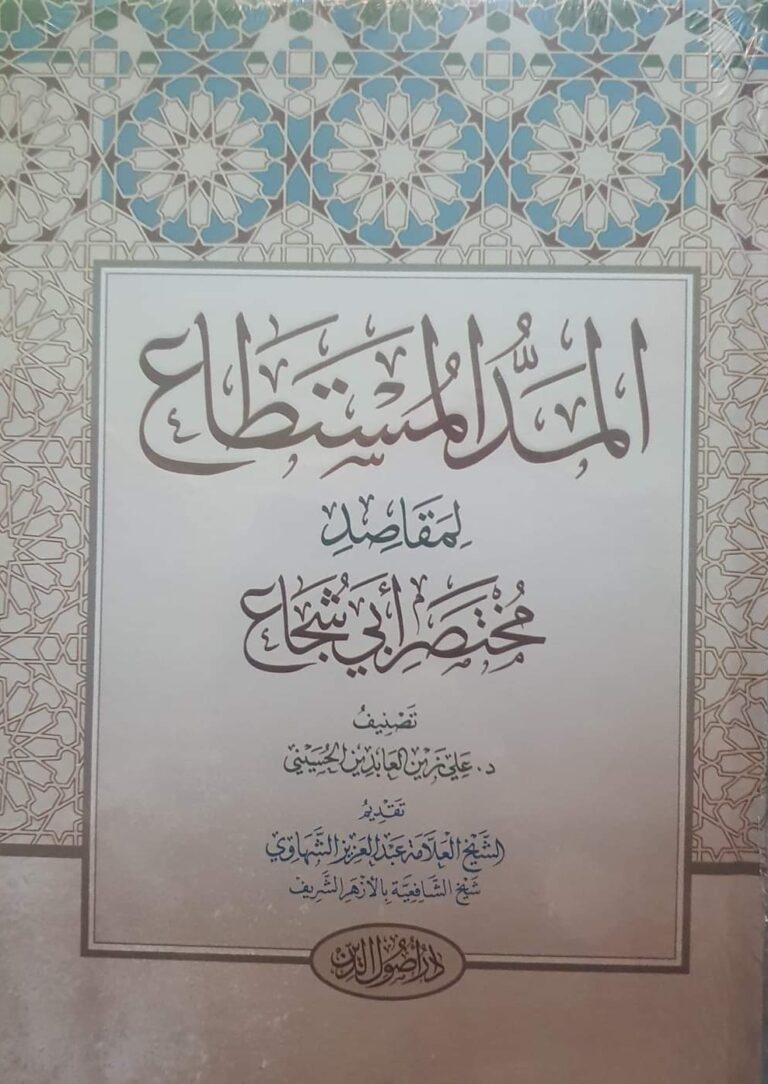 المَدُّ المُسْتَطَاع
لِمَقَاصِدِ
مُخْتَصَر أَبِي شُجَاع
تَصْنِيفُ
د. عَلِي زَيْن العَابِدِين الحُسَيْنِي
تَقْدِيمُ
الشَّيْخ العَلَّامَة عَبْد العَزِيز الشَّهَاوِي
شَيْخ الشَّافِعِيَّة بِالأَزْهَر الشَّرِيف
دَارُ أُصُول الدِّين